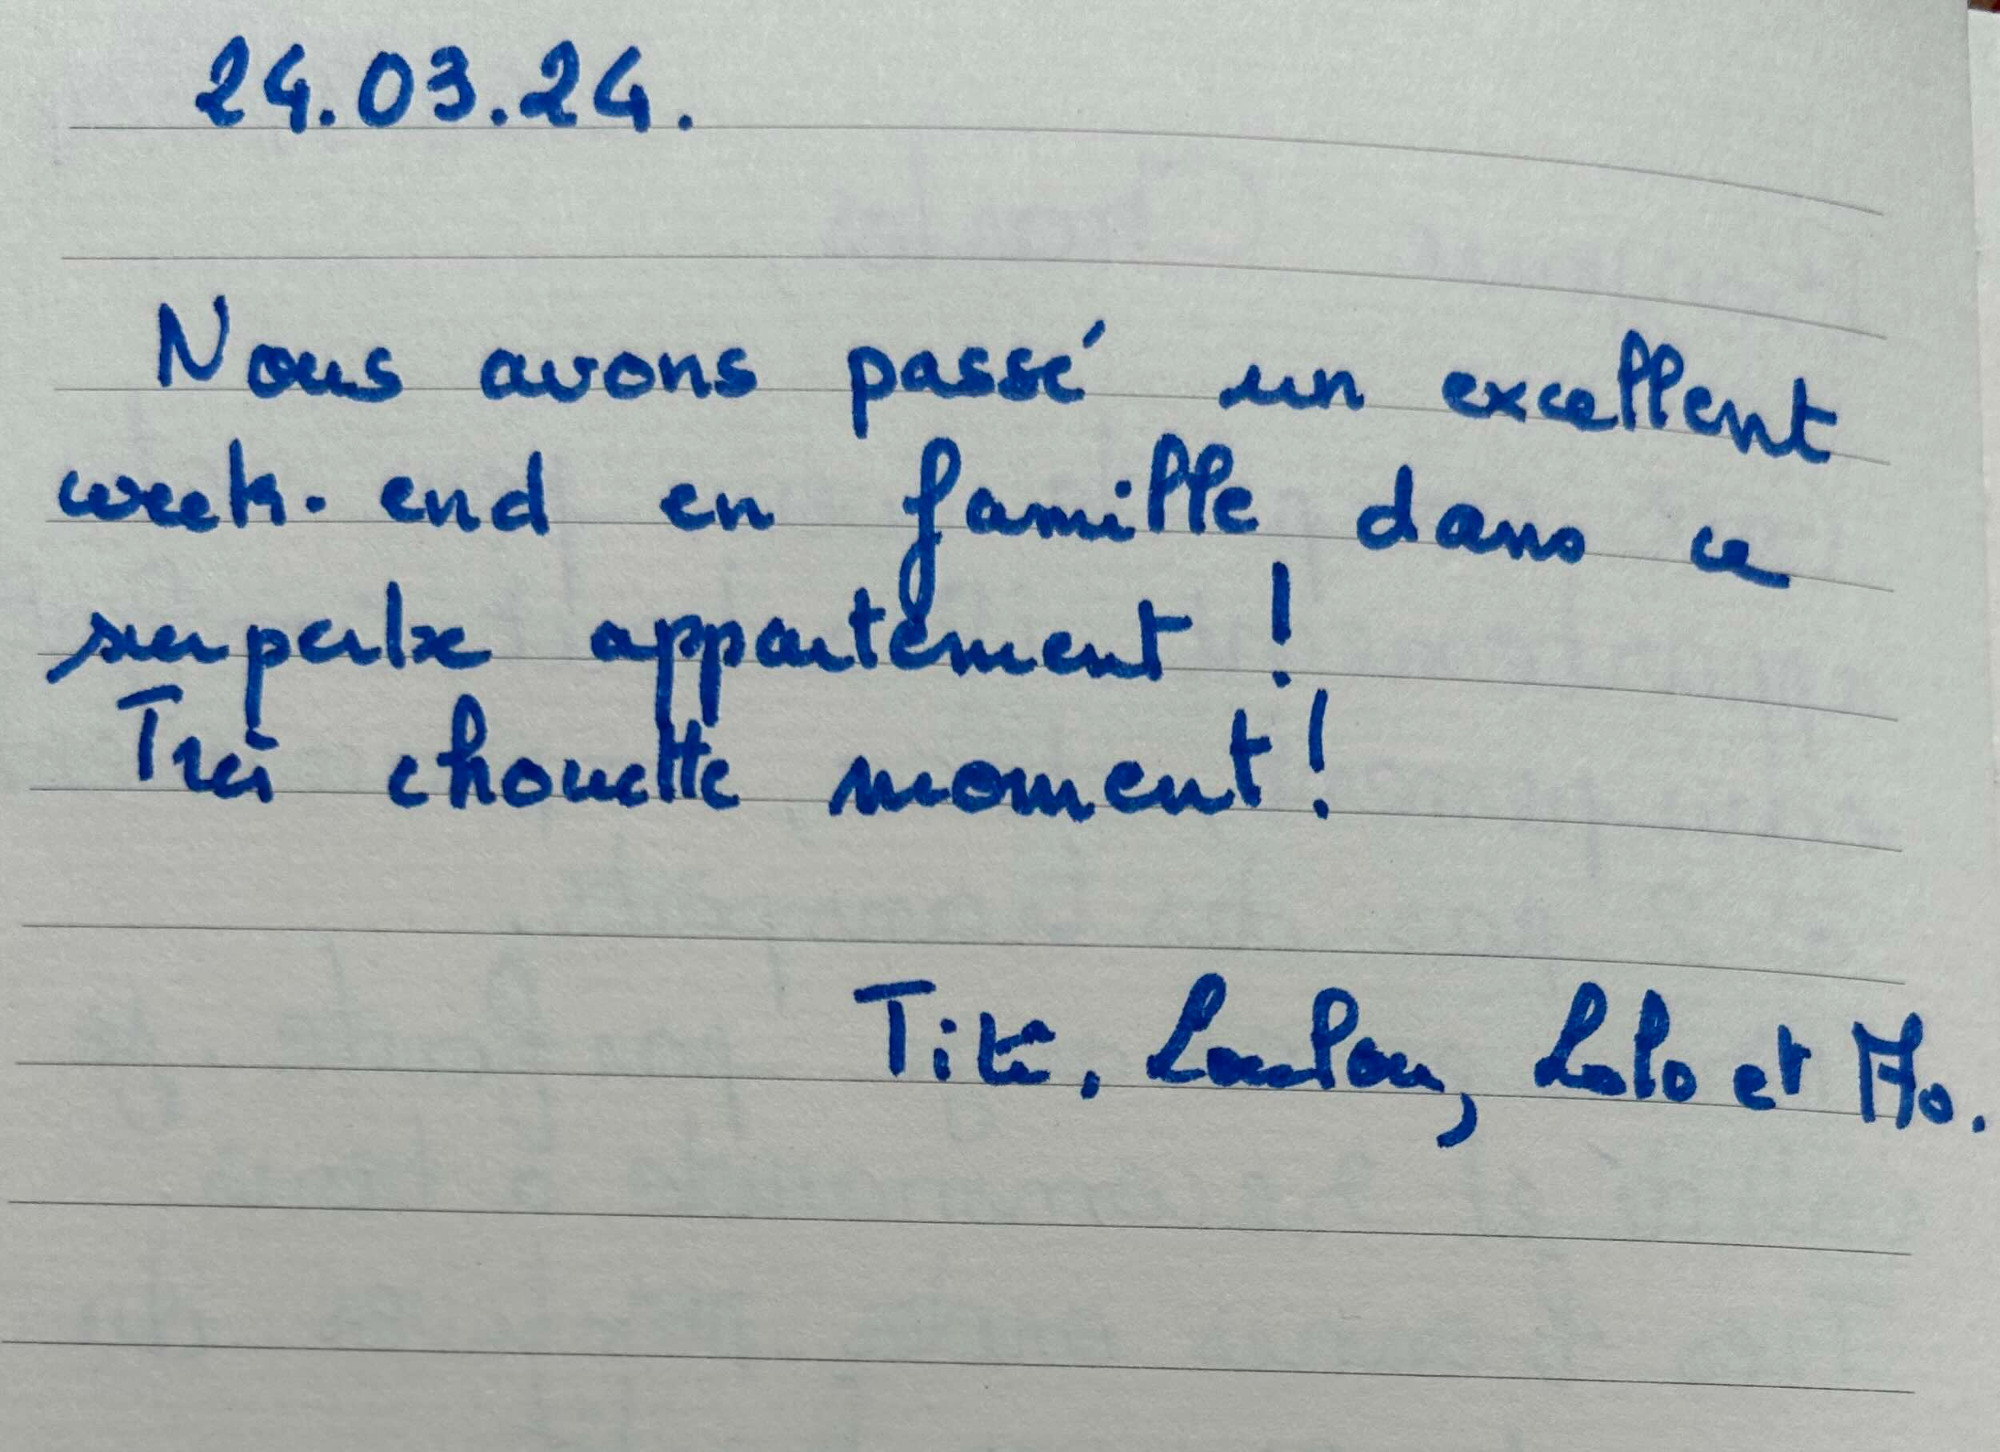 24.03.24.
Nous avons passé un excellent
week-end en famille dans ce
superbe appartement !
Très chouette moment !
Loulou, Lolo et Mo.